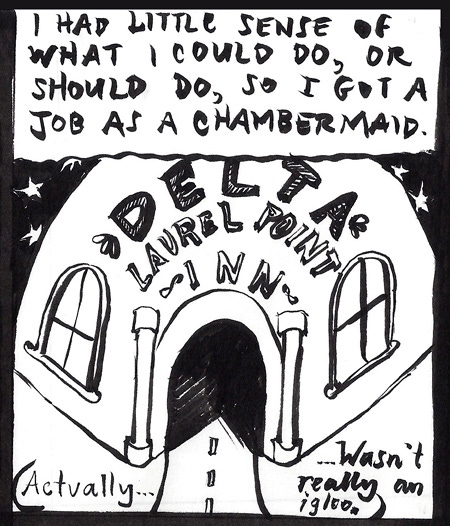 I HAD LITTLE SENSE OF
WHAT I COULD DO, OR
SHOULD DO, SO I GOT A
JOB AS A CHAMBERMAID.
DELTA
LAUREL POINT
INN
(Actually...
...Wasn't
really an
igloo.)